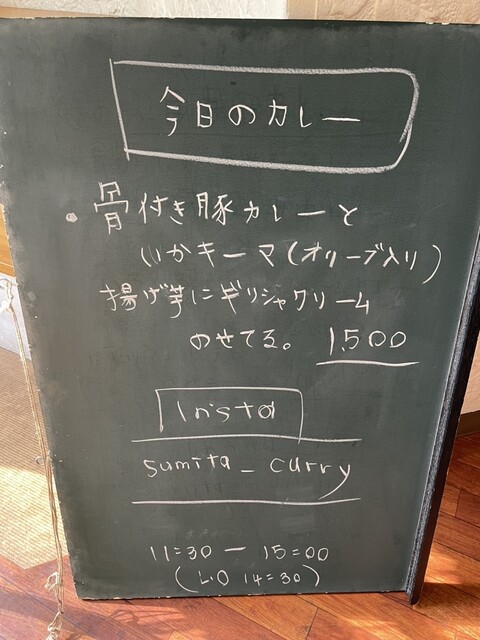 今日のカレー
・骨付き豚カレーと
いかキーマ(オリーブ入り)
揚げ芋にギリシャクリーム
のせてる。 1,500
Insta
sumita_curry
11:30 ー 15:00
(L.O 14:30)